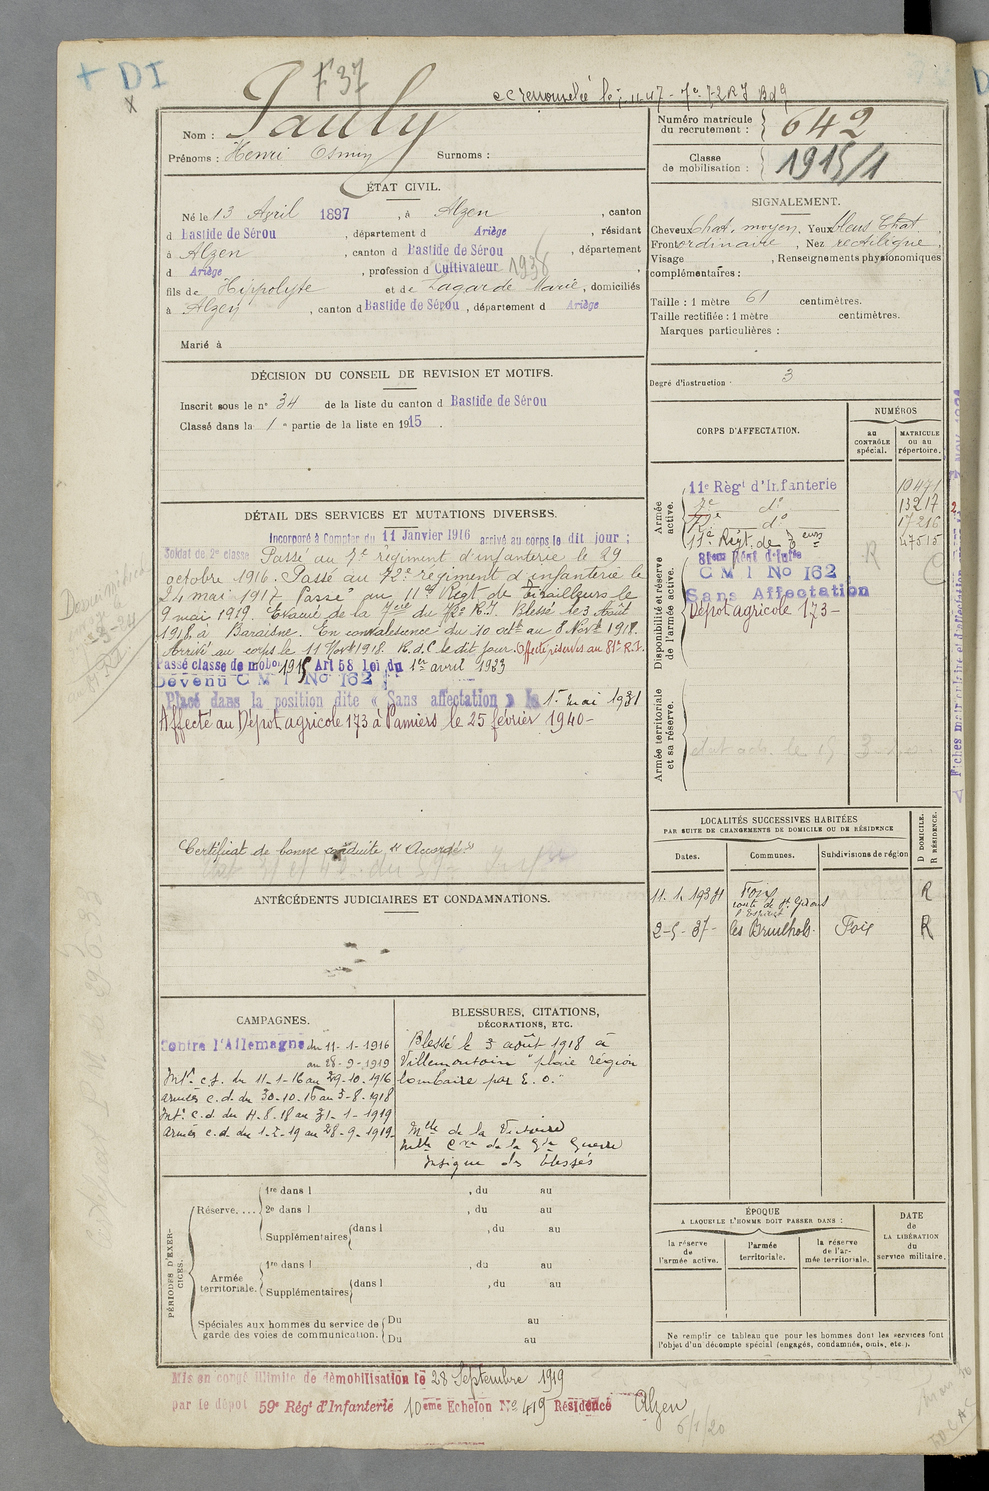 + DI
X
F 37
Pauly
Nom :
Prénoms : Henri Osmin Surnoms :
Numéro matricule du recrutement : 642
Classe de mobilisation : 1915/1
ÉTAT CIVIL.
Né le 13 Avril 1897, à Alzen, canton
d Bastide de Sérou, département d Ariège, résidant
à Alzen, canton d Bastide de Sérou, département
d Ariège, profession d Cultivateur 1936
fils de Hippolyte et de Lagarde Marie, domiciliés
à Alzen, canton d Bastide de Sérou, département d Ariège
Marié à
SIGNALEMENT.
Cheveux Chat. moyen, Yeux bleus Chat
Front ordinaire, Nez rectiligne,
Visage , Renseignements physionomiques
complémentaires :
Taille : 1 mètre 61 centimètres.
Taille rectifiée : 1 mètre centimètres.
Marques particulières :
Degré d'instruction 3
DÉCISION DU CONSEIL DE REVISION ET MOTIFS.
Inscrit sous le n° 34 de la liste du canton d Bastide de Sérou
Classé dans la 1re partie de la liste en 1915.
DÉTAIL DES SERVICES ET MUTATIONS DIVERSES.
Incorporé à Compter du 11 Janvier 1916 arrivé au corps le dit jour ;
Soldat de 2e classe Passé au 7e régiment d'infanterie le 29
octobre 1916. Passé au 72e régiment d'infanterie le
24 mai 1917. Passé au 11e Régt de Tirailleurs le
9 mai 1919. Evacué de la 7eme du 72e R.I. Blessé le 3 Août
1918 à Baraisne. En convalescence du 10 octb au 8 Novb 1918.
Arrivé au corps le 11 Novb 1918. R.d.C le dit jour. Affecté réserves au 81e R.I.
Passé classe de mobon 1915 Art 58 Loi du 1er avril 1923
Devenu C M I No 162
Placé dans la position dite « Sans affectation » le 1er mai 1931
Affecté au Dépot agricole 173 à Pamiers le 25 février 1940-
Certificat de bonne conduite "Accordé"
CORPS D'AFFECTATION.
NUMÉROS
au CONTRÔLE spécial.
MATRICULE ou au répertoire.
Armée active.
11e Régt d'Infanterie 10491
7e do 13217
72e do 17216
11e Régt de Teurs 47515
Disponibilité et réserve de l'armée active.
81eme Régt d'Inftie
C M I No 162
Sans Affectation
Dépot agricole 173-
R
C
Armée territoriale et sa réserve.
LOCALITÉS SUCCESSIVES HABITÉES
PAR SUITE DE CHANGEMENTS DE DOMICILE OU DE RÉSIDENCE
D DOMICILE.
R RÉSIDENCE.
Dates. Communes. Subdivisions de région
11.1.1931 Foix route de St Girons R
2-5-37- les Brulhols. Foix R
ANTÉCÉDENTS JUDICIAIRES ET CONDAMNATIONS.
CAMPAGNES.
Contre l'Allemagne du 11-1-1916
au 28-9-1919
Intr. c.s. du 11-1-16 au 29-10-1916
Armées c.d. du 30-10-16 au 3-8-1918
Intr. c.d. du 4-8-18 au 31-1-1919
Armés c.d. du 1-2-19 au 28-9-1919-
BLESSURES, CITATIONS,
DÉCORATIONS, ETC.
Blessé le 3 août 1918 à
Villemontoir "plaie région
lombaire par E.O."
Mlle de la Victoire
Mlle Cve de la Gde Guerre
Insigne des blessés
PÉRIODES D'EXERCICES.
Réserve....
1re dans l , du au
2e dans l , du au
Supplémentaires dans l , du au
Armée territoriale.
1re dans l , du au
Supplémentaires dans l , du au
Spéciales aux hommes du service de garde des voies de communication.
Du au
Du au
ÉPOQUE
A LAQUELLE L'HOMME DOIT PASSER DANS :
la réserve de l'armée active.
l'armée territoriale.
la réserve de l'armée territoriale.
DATE de LA LIBÉRATION du service militaire.
Ne remplir ce tableau que pour les hommes dont les services font
l'objet d'un décompte spécial (engagés, condamnés, omis, etc.).
Mis en congé illimité de démobilisation le 28 Septembre 1919
par le dépot 59e Régt d'Infanterie 10eme Echelon No 419 Résidence Alzen
6/1/20